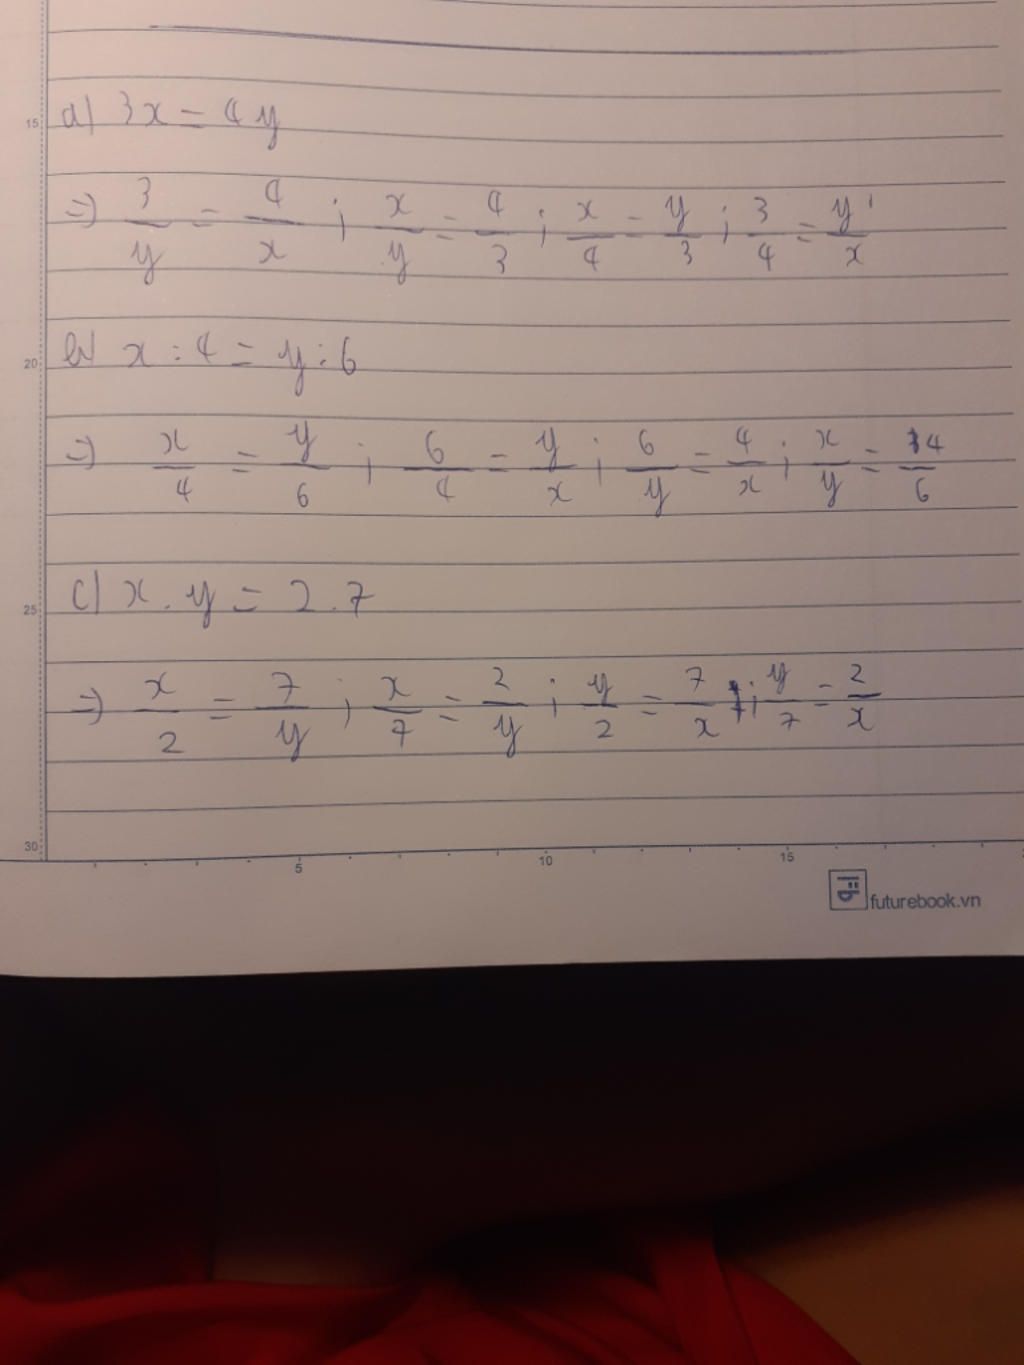 15
a) 3x = 4y
=> 3/y = 4/x ; x/y = 4/3 ; x/4 = y/3 ; 3/4 = y/x
20
b) x : 4 = y : 6
=> x/4 = y/6 ; 6/4 = y/x ; 6/y = 4/x ; x/y = 4/6
25
c) x . y = 2 . 7
=> x/2 = 7/y ; x/7 = 2/y ; y/2 = 7/x ; y/7 = 2/x
30
5 10 15
futurebook.vn